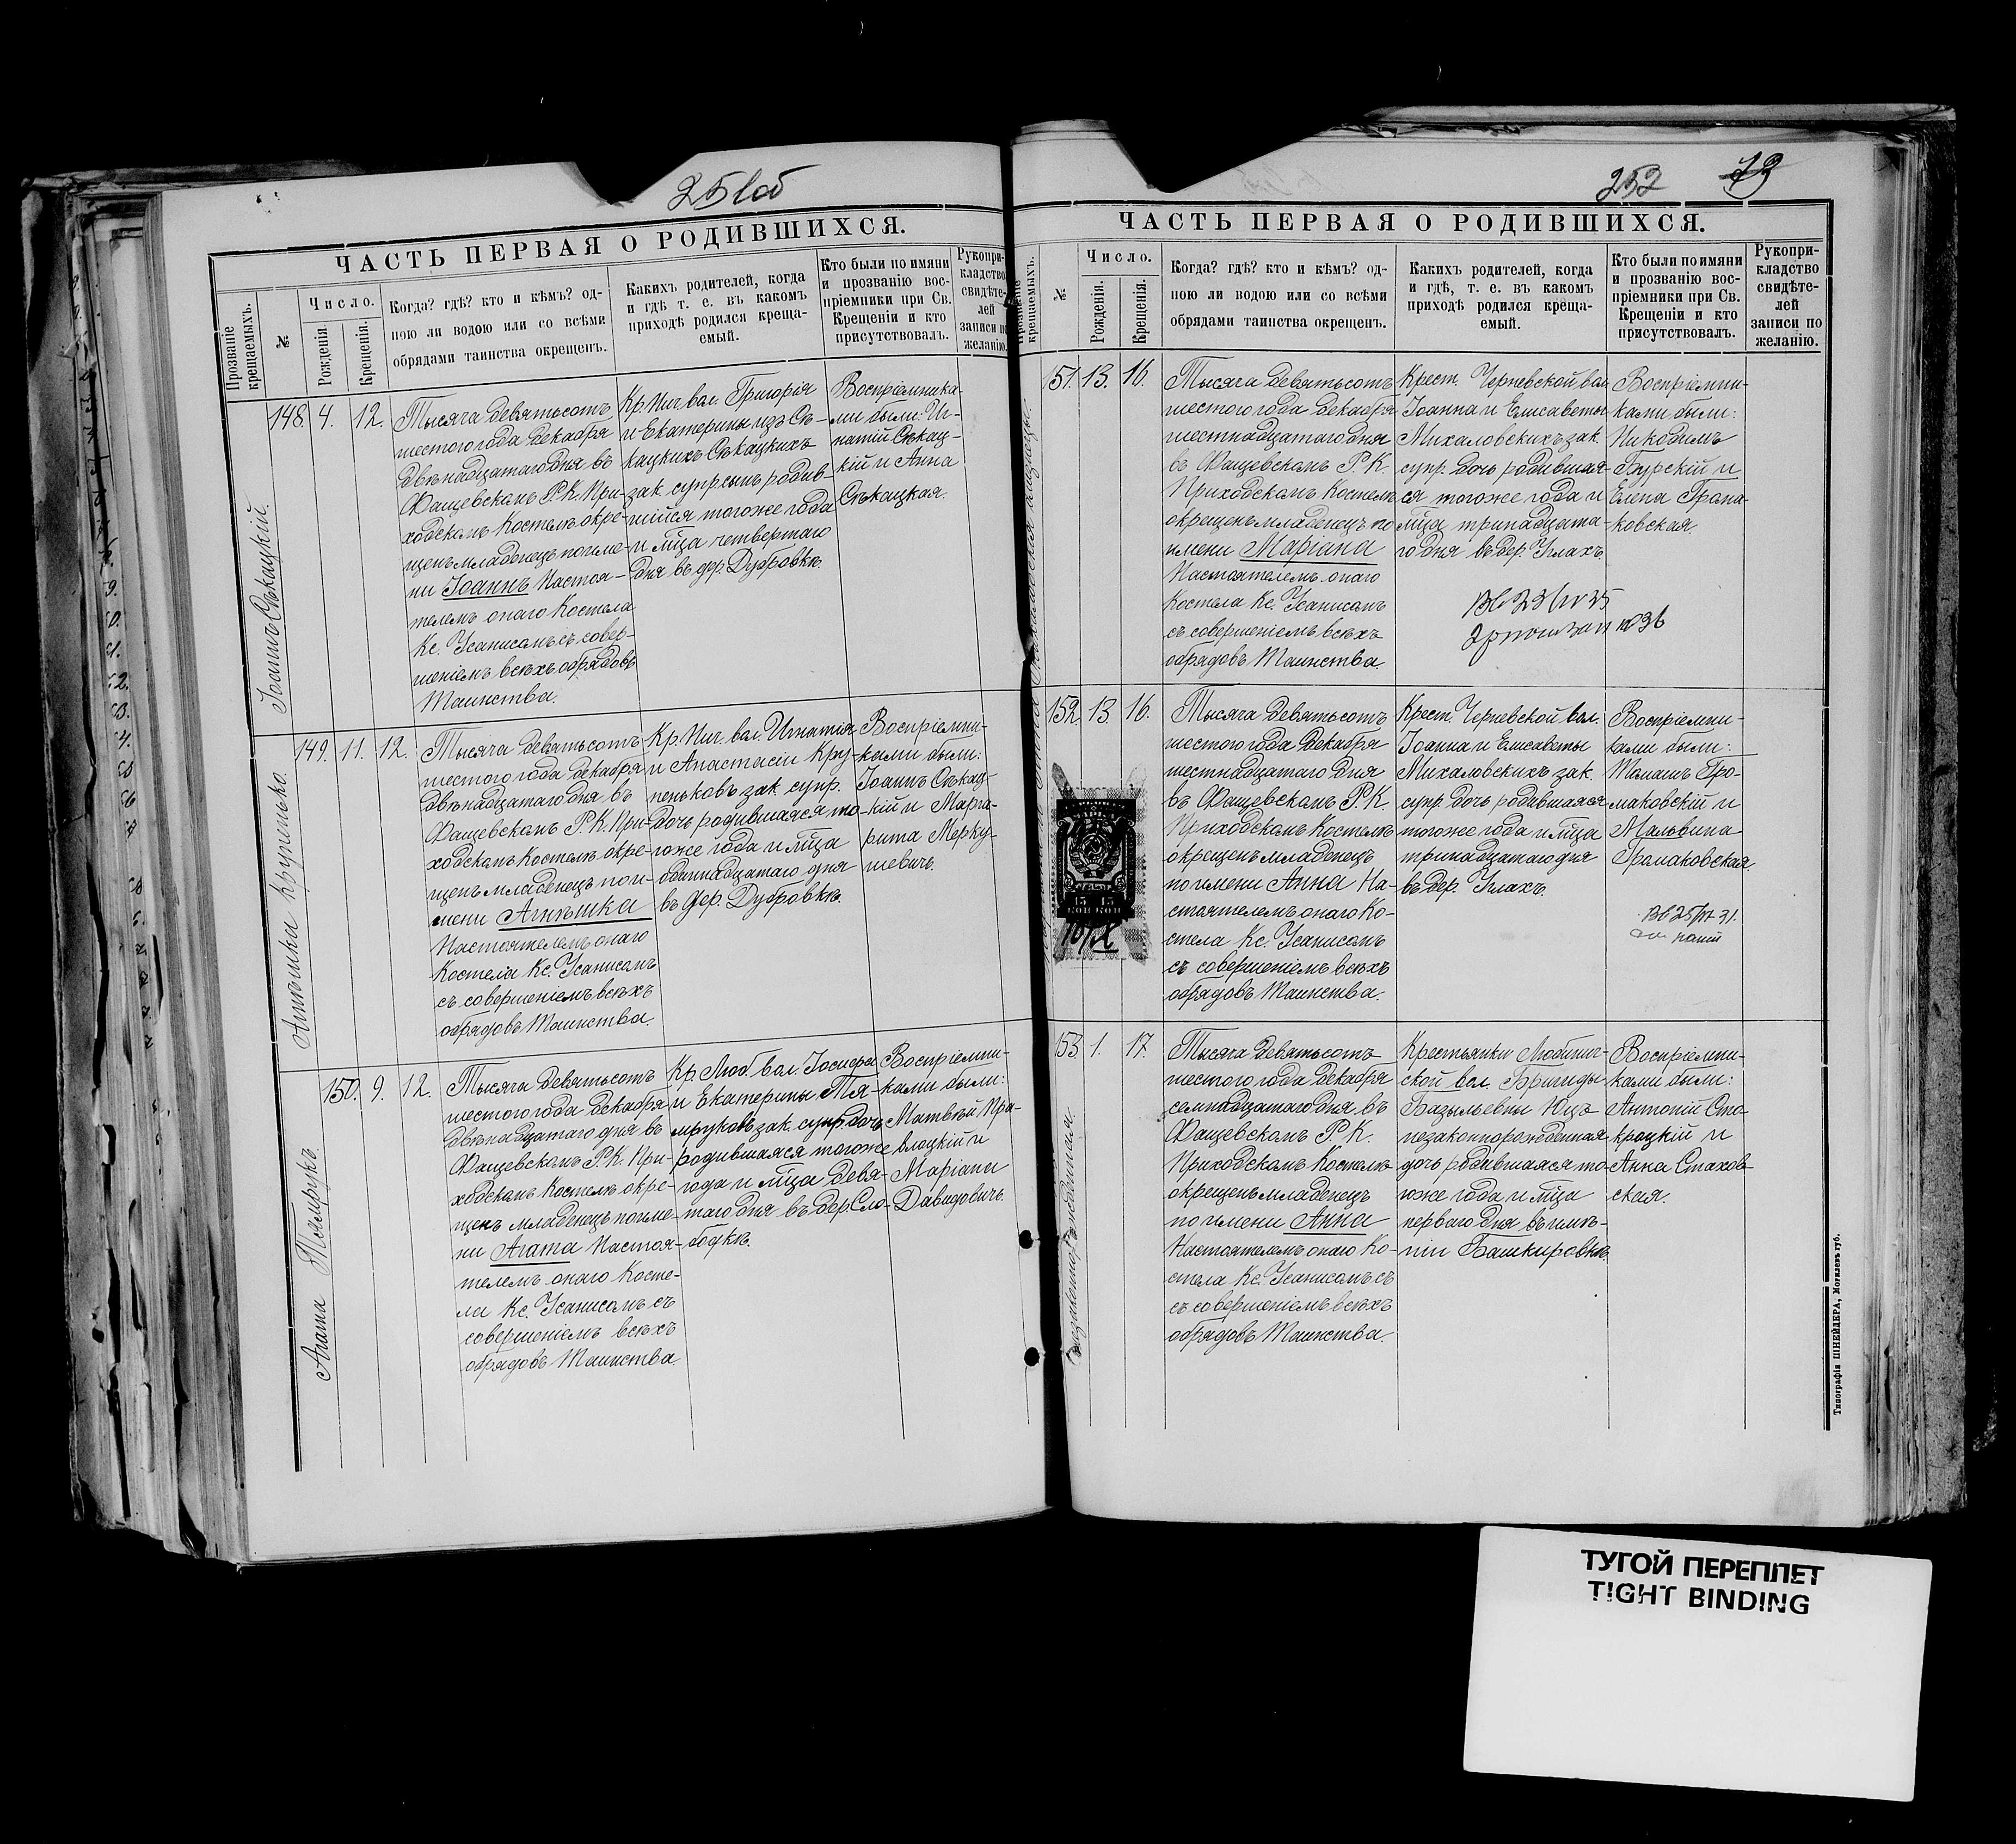 251об
ЧАСТЬ ПЕРВАЯ О РОДИВШИХСЯ.
Прозваніе крещаемыхъ.
№
Число.
Рожденія.
Крещенія.
Когда? гдѣ? кто и кѣмъ? од-
ною ли водою или со всѣми
обрядами таинства окрещенъ.
Какихъ родителей, когда
и гдѣ т. е. въ какомъ
приходѣ родился креща-
емый.
Кто были по имяни
и прозванію вос-
пріемники при Св.
Крещеніи и кто
присутствовалъ.
Рукопри-
кладство
свидѣте-
лей
записи по
желанію.
Іоаннъ Сѣкацкій.
148. 4. 12.
Тысяча девятьсотъ
шестого года декабря
двѣнадцатаго дня въ
Фащевскомъ Р. К. При-
ходскомъ Костелѣ окре-
щенъ младенецъ по име-
ни Іоаннъ Настоя-
телемъ онаго Костела
Кс. Усанисомъ съ совер-
шеніемъ всѣхъ обрядовъ
Таинства.
Кр. Ниг. вол. Григорія
и Екатерины изъ Сѣ-
кацкихъ Сѣкацкихъ
зак. супр. сынъ родив-
шійся тогоже года
и мѣсца четвертаго
дня въ дер. Дубровкѣ.
Воспріемника-
ми были: Иг-
натій Сѣкац-
кій и Анна
Сѣкацкая.
Агнѣшка Крупенько.
149. 11. 12.
Тысяча девятьсотъ
шестого года декабря
двѣнадцатаго дня въ
Фащевскомъ Р. К. При-
ходскомъ Костелѣ окре-
щенъ младенецъ по и-
мени Агнѣшка
Настоятелемъ онаго
Костела Кс. Усанисомъ
съ совершеніемъ всѣхъ
обрядовъ Таинства.
Кр. Ниг. вол. Игнатія
и Анастасіи Кру-
пеньковъ зак. супр.
дочь родившаяся то-
гоже года и мѣсца
одиннадцатаго дня
въ дер. Дубровкѣ.
Воспріемни-
ками были:
Іоаннъ Сѣкац-
кій и Марга-
рита Мерку-
шевичъ.
Агата Тямрукъ.
150. 9. 12.
Тысяча девятьсотъ
шестого года декабря
двѣнадцатаго дня въ
Фащевскомъ Р. К. При-
ходскомъ Костелѣ окре-
щенъ младенецъ по име-
ни Агата Настоя-
телемъ онаго Косте-
ла Кс. Усанисомъ съ
совершеніемъ всѣхъ
обрядовъ Таинства.
Кр. Люб. вол. Іосифа
и Екатерины Тя-
мруковъ зак. супр. дочь
родившаяся тогоже
года и мѣсца девя-
таго дня въ дер. Сло-
бодкѣ.
Воспріемни-
ками были:
Матвѣй
и
Маріанн
Давидовичъ.
252 73
ЧАСТЬ ПЕРВАЯ О РОДИВШИХСЯ.
крещаемыхъ.
№
Число.
Рожденія.
Крещенія.
Когда? гдѣ? кто и кѣмъ? од-
ною ли водою или со всѣми
обрядами таинства окрещенъ.
Какихъ родителей, когда
и гдѣ, т. е. въ какомъ
приходѣ родился креща-
емый.
Кто были по имяни
и прозванію вос-
пріемники при Св.
Крещеніи и кто
присутствовалъ.
Рукопри-
кладство
свидѣте-
лей
записи по
желанію.
151. 13. 16.
Тысяча девятьсотъ
шестого года декабря
шестнадцатаго дня
въ Фащевскомъ Р. К.
Приходскомъ Костелѣ
окрещенъ младенецъ по
имени Маріана
Настоятелемъ онаго
Костела Кс. Усанисомъ
съ совершеніемъ всѣхъ
обрядовъ Таинства.
Крест. Черневской вол.
Іоанна и Елисаветы
Михаловскихъ зак.
супр. дочь родившая-
ся тогоже года и
мѣсца тринадцата-
го дня въ дер. Углахъ.
Воспріемни-
ками были:
Никодимъ
Бурскій и
Елена Грома-
ковская.
152. 13. 16.
Тысяча девятьсотъ
шестого года декабря
шестнадцатаго дня
въ Фащевскомъ Р. К.
Приходскомъ Костелѣ
окрещенъ младенецъ
по имени Анна На-
стоятелемъ онаго Ко-
стела Кс. Усанисомъ
съ совершеніемъ всѣхъ
обрядовъ Таинства.
Крест. Черневской вол.
Іоанна и Елисаветы
Михаловскихъ зак.
супр. дочь родившаяся
тогоже года и мѣсца
тринадцатаго дня
въ дер. Углахъ.
Воспріемни-
ками были:
Томашъ Гро-
маковскій и
Мальвина
Громаковская.
15 15
КОП КОП
153. 1. 17.
Тысяча девятьсотъ
шестого года декабря
семнадцатаго дня въ
Фащевскомъ Р. К.
Приходскомъ Костелѣ
окрещенъ младенецъ
по имени Анна
Настоятелемъ онаго Ко-
стела Кс. Усанисомъ съ
съ совершеніемъ всѣхъ
обрядовъ Таинства.
Крестьянки Любинич-
ской вол. Бригиды
Базыльевны Юць
незаконнорожденная
дочь родившаяся то-
гоже года и мѣсца
перваго дня въ имѣ-
ніи Башкировкѣ.
Воспріемни-
ками были:
Антоній Сто-
кроцкій и
Анна Стахов-
ская.
Типографія ШНЕЙДЕРА, Могилевъ губ.
ТУГОЙ ПЕРЕПЛЕТ
TIGHT BINDING